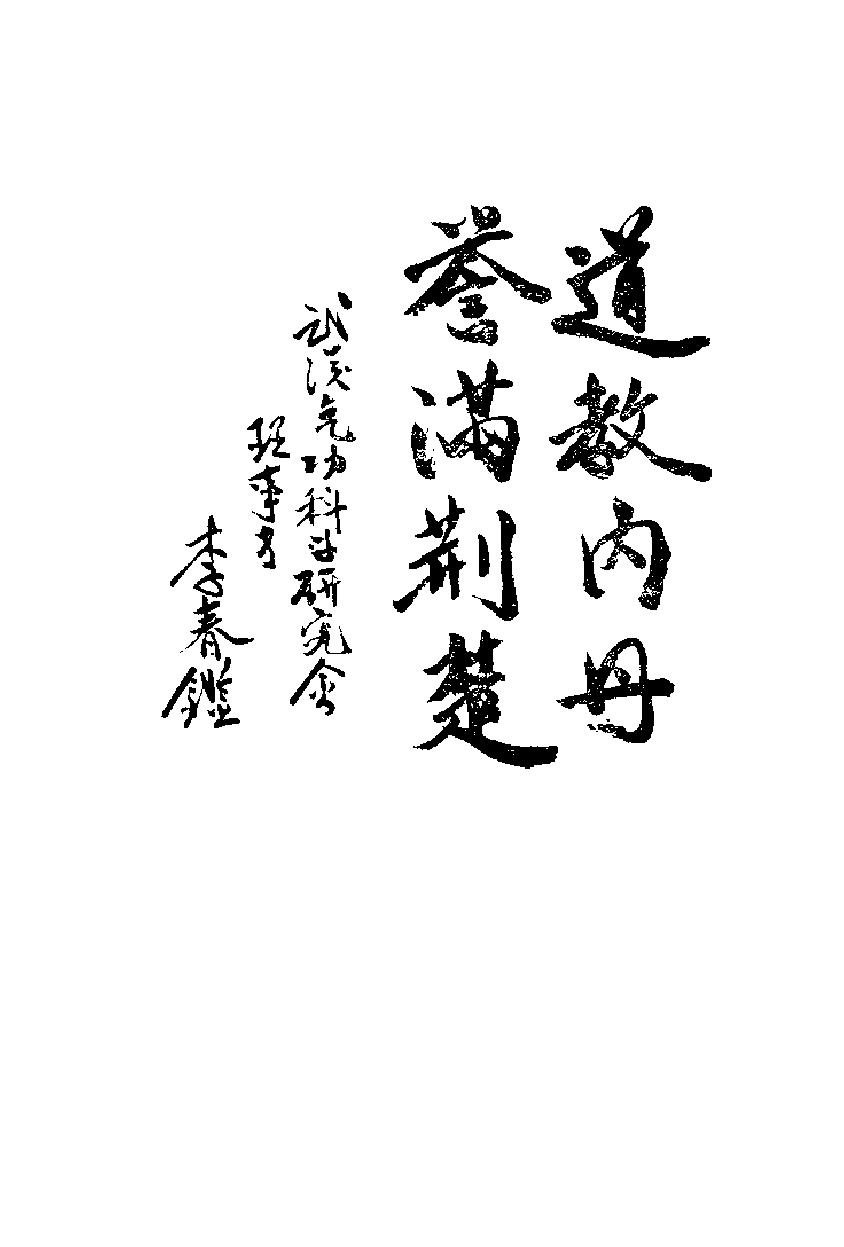 道教内丹
誉满荆楚
武汉气功科学研究会
理事长
李春鑑